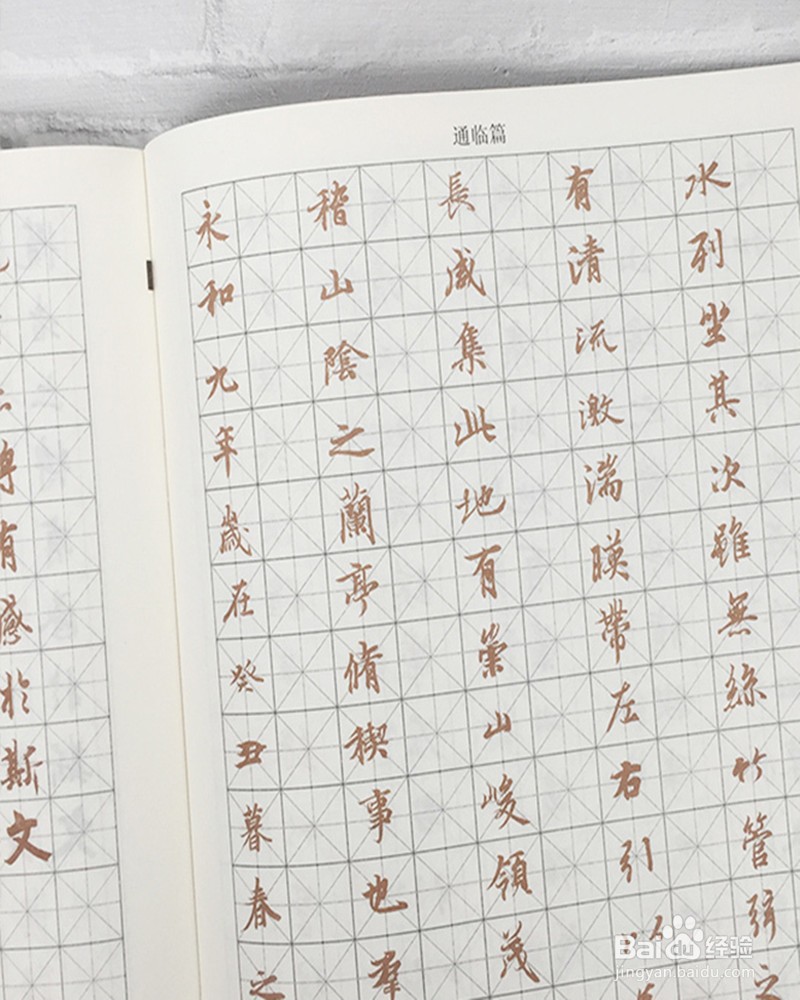 有感於斯文
通临篇
永和九年歲在癸丑暮春之
稽山陰之蘭亭脩稧事也羣
長咸集此地有崇山峻領茂
有清流激湍暎帶左右引
水列坐其次雖無絲竹管弦之
Baidu经验
jingyan.baidu.com